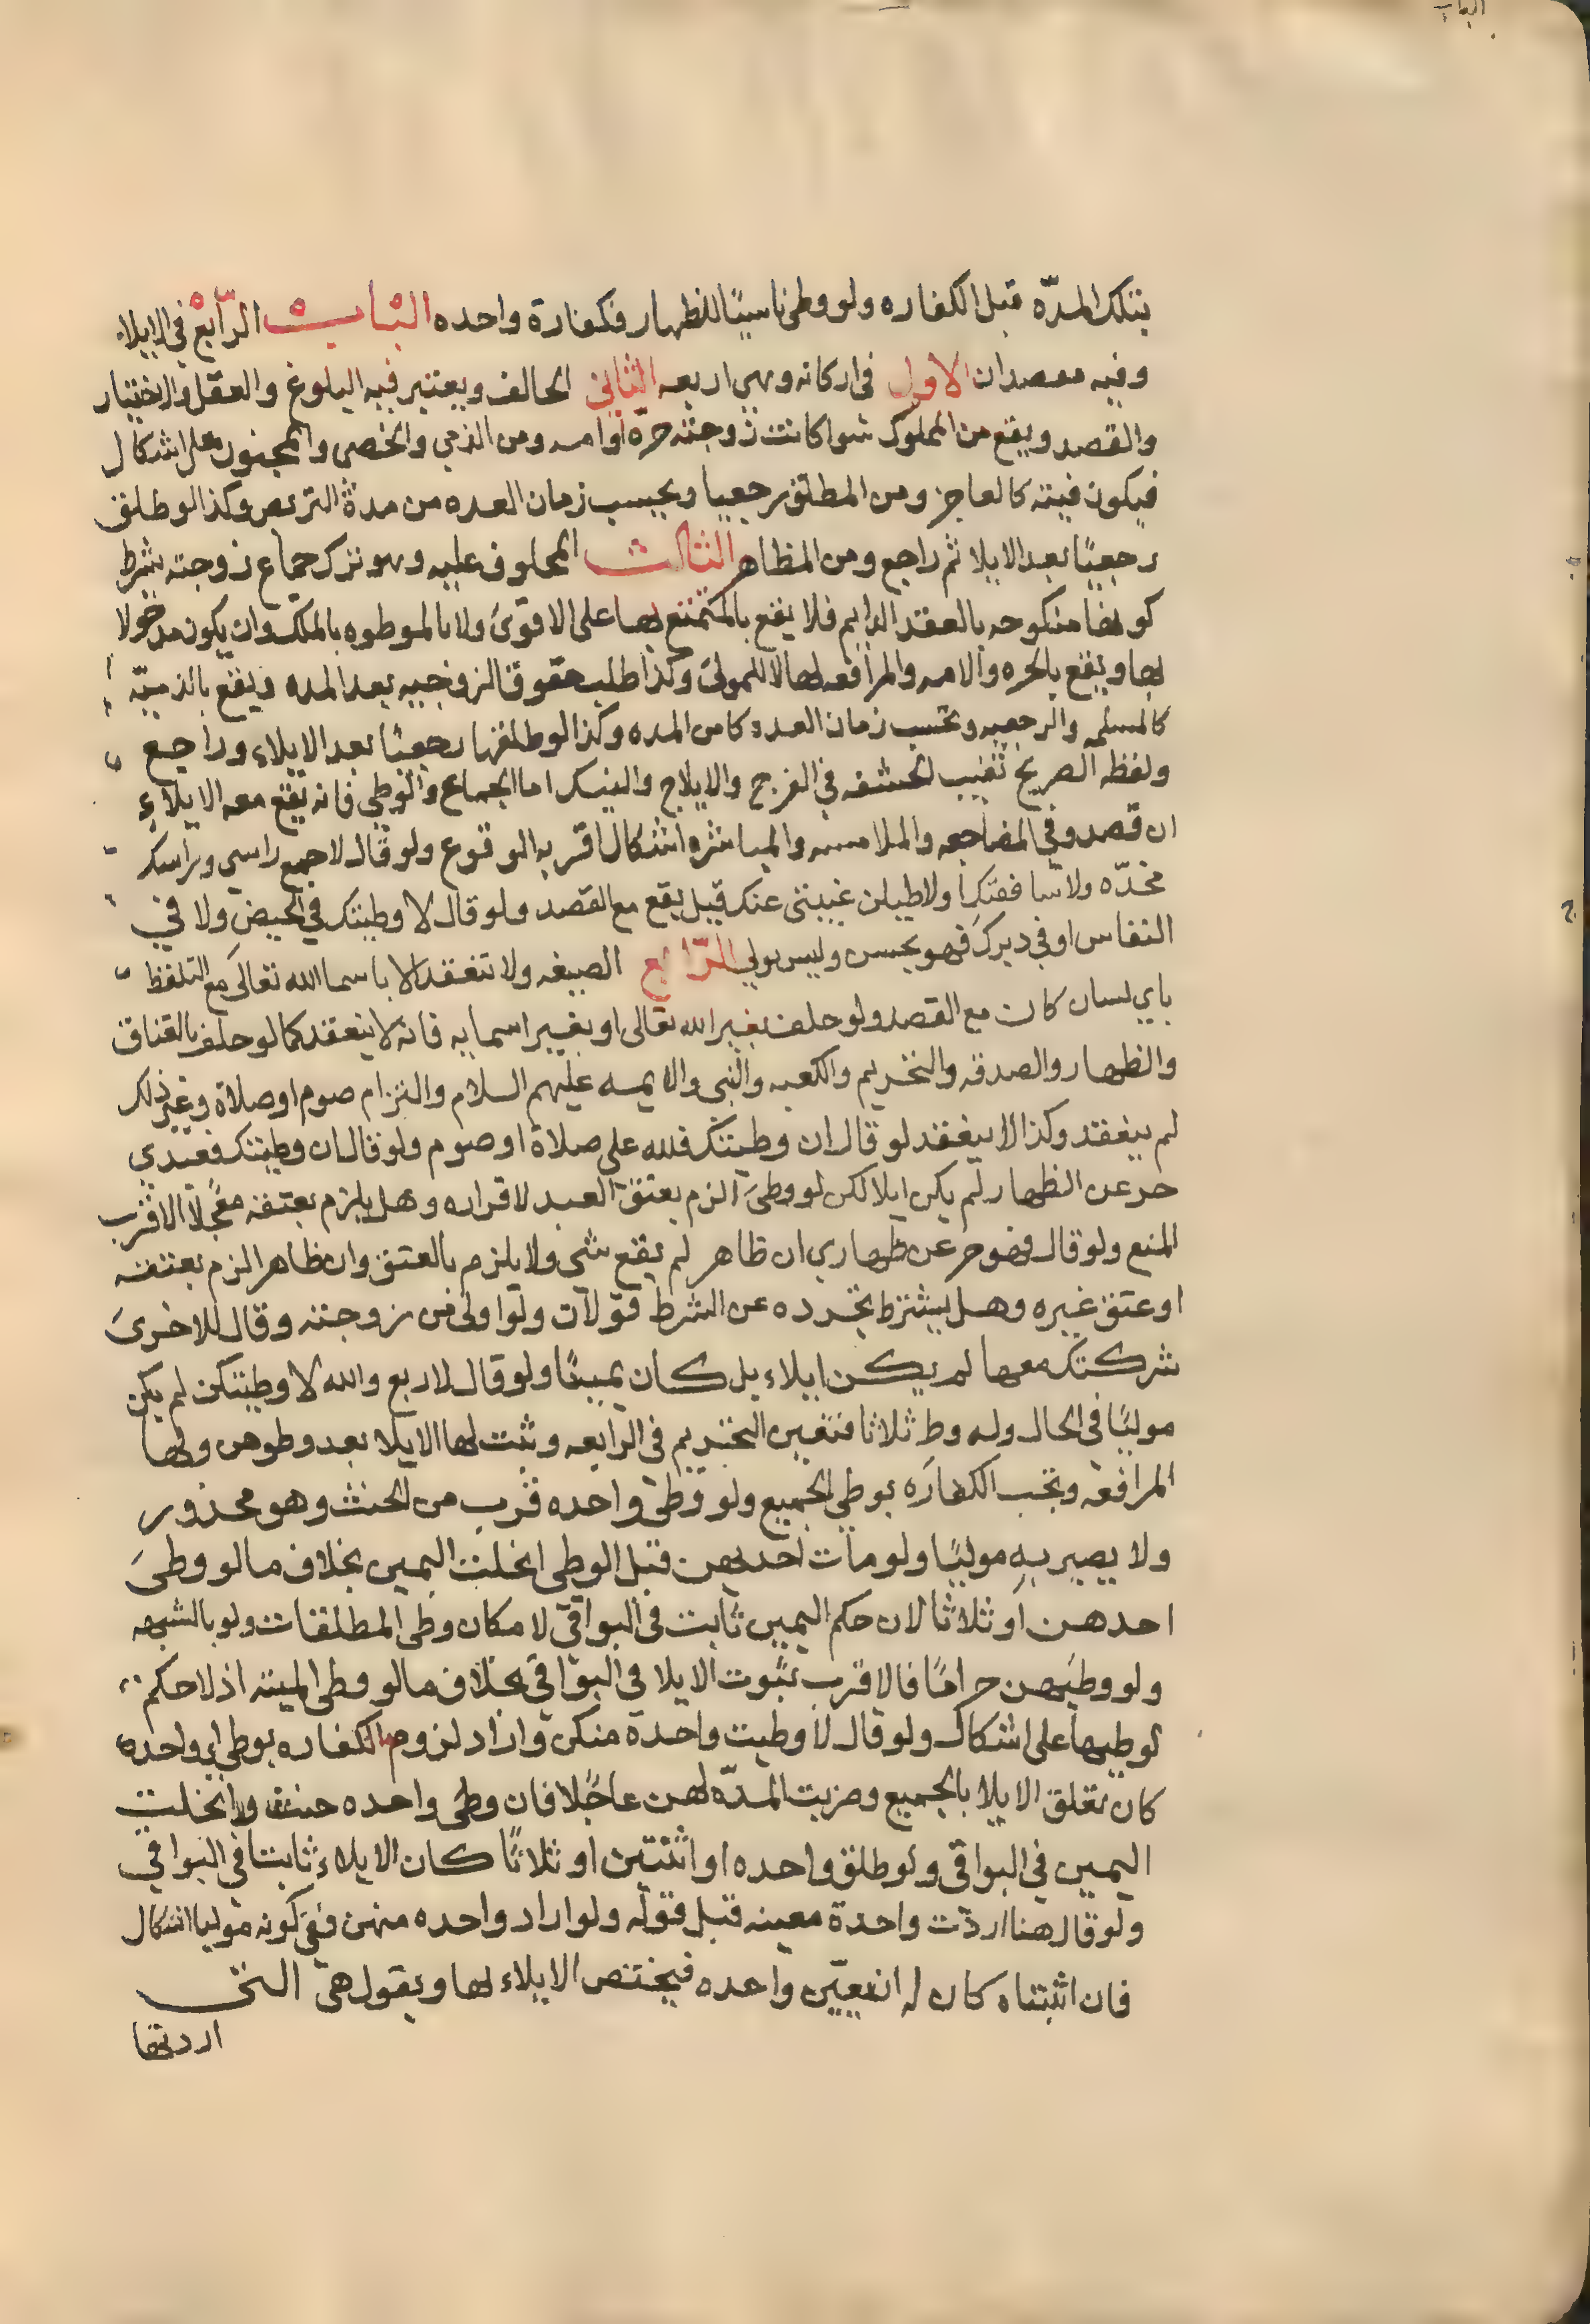 بتلك المدّه قبل الكفاره ولو وطئ ناسيًا للظهار فكفارة واحده الباب الرّابع في الايلاء
وفيه مقصدان الاول في اركانه وهي اربعه الثاني الحالف ويعتبر فيه البلوغ والعقل والاختيار
والقصد ويقع من المملوك سوا كانت زوجته حرّه او امه ومن الذمي والخصي والمجنون على اشكال
فيكون فيئته كالعاجز ومن المطلق رجعيا ويحسب زمان العده من مدة التربص وكذا لو طلق
رجعيًا بعد الايلا ثم راجع ومن المظاهر الثالث المحلوف عليه وهو ترك جماع زوجته بشرط
كونها منكوحه بالعقد الدايم فلا يقع بالمتمتع بها على الاقوى ولا بالموطوه بالملك وان يكون مدخولا
بها ويقع بالحره والامه والمرافعه لها لا للمولى وكذا طلب حقوق الزوجيه بعد المده ويقع بالذميّه
كالمسلمه والرجعيه ويحتسب زمان العده كا من المده وكذا لو طلقها رجعيًا بعد الايلاء وراجع
ولفظه الصريح تغيب الحشفه في الفرج والايلاج والنيك اما الجماع والوطي فانه يقع معه الايلاء
ان قصد وفي المضاجعه والملامسه والمباشره اشكال اقربه الوقوع ولو قال لا جمع راسي وراسك
مخدّه ولا سا قفتك او لاطيلن غيبتى عنك قيل يقع مع القصد ولو قال لا وطيتك في الحيض ولا في
النفاس او في دبرك فهو محسن وليس بولي الرّابع الصيغه ولا تنعقد الا باسما الله تعالى مع التلفظ
باي لسان كان مع القصد ولو حلف بغير الله تعالى او بغير اسمايه فانه لا ينعقد كما لو حلف بالعتاق
والظهار والصدقه والتحريم والكعبه والنبى والايمه عليهم السلام والتزام صوم او صلاة وغير ذلك
لم ينعقد وكذا لا ينعقد لو قال ان وطيتك فلله على صلاة او صوم ولو قال ان وطيتك فعبدي
حر عن الظهار لم يكن ايلا لكن لو وطئ الزم بعتق العبد لاقراره وهل يلزم بعتقه معجلًا الاقرب
المنع ولو قال فهو حر عن ظهاري ان ظاهر لم يقع شي ولا يلزم بالعتق وان ظاهر الزم بعتقه
او عتق غيره وهل يشترط تجرده عن الشرط قولان ولو اولى من زوجته وقال للاخرى
شركتك معها لم يكن ايلاء بل كان يمينًا ولو قال لاربع والله لا وطيتكن لم يكن
موليًا في الحال وله وط ثلاثا فتعين التحريم في الرابعه وثبت لها الايلا بعد وطوهن ولها
المرافعه وتجب الكفاره بوطي الجميع ولو وطئ واحده قرب من الحنث وهو محذور
ولا يصير به موليًا ولو مات احديهن قبل الوطى انحلت اليمين بخلاف ما لو وطئ
احدهن او ثلاثا لان حكم اليمين ثابت في البواقي لا مكان وطى المطلقات ولو بالشبهه
ولو وطيهن حرامًا فالاقرب ثبوت الايلا في البواقي بخلاف ما لو وطى الميته اذ لا حكم
لوطيها على اشكال ولو قال لا وطيت واحدة منكن واراد لزوم الكفاره بوطي اي واحده
كان تعلق الايلا بالجميع وضربت المدّه لهن عاجلا فان وطى واحده حنث وانحلت
اليمين في البواقي ولو طلق واحده او اثنتين او ثلاثًا كان الايلاء ثابتا في البواقي
ولو قال هنا اردت واحدة معينه قبل قوله ولو اراد واحده منهن ففي كونه موليا اشكال
فان اثبتناه كان له ان يعيّن واحده فيختص الايلاء لها ويقول هي التي
اردتها